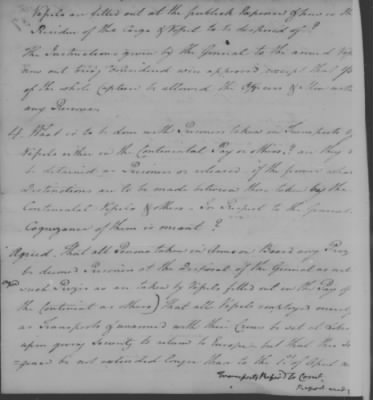 Vessels are fitted out at the publick Expence & how is the
Residue of the Cargo & Vessel to be disposed of?
The Instructions given by the General to the armed Vessels
now out being considered were approved except that
of the whole Capture be allowed the Officers & Men with
any Reserve
4. What is to be done with Prisoners taken in Transports by
Vessels either in the Continental Pay or others? are they to
be detained as Prisoners or released, if the former what
Distinctions are to be made between those taken by the
Continental Vessels & others - In Respect to the General
Cognizance of them is meant?
Agreed. That all Persons taken in Arms on Board any Prize
be deemed Prisoners at the Disposal of the General as well
such Prizes as are taken by Vessels fitted out in the Pay of
the Continent as others) That all Vessels employed merely
as Transports & unarmed with their Crews be set at Liberty
upon giving Security to return to Europe, but that this
be not extended longer than to the 1st of April
Transports Refer'd to Comt.